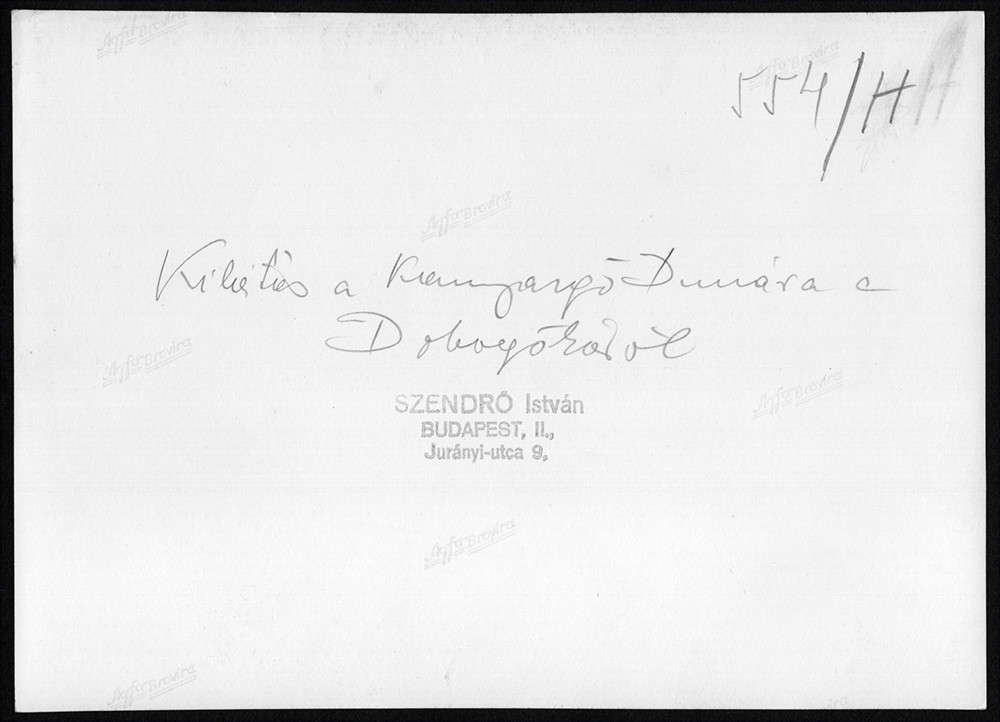 554/H H
Kilátás a kanyargó Dunára a
Dobogókőről
SZENDRŐ István
BUDAPEST, II.,
Jurányi-utca 9,
Agfa Brovira
Agfa Brovira
Agfa Brovira
Agfa Brovira
Agfa Brovira
Agfa Brovira
Agfa Brovira
Agfa Brovira